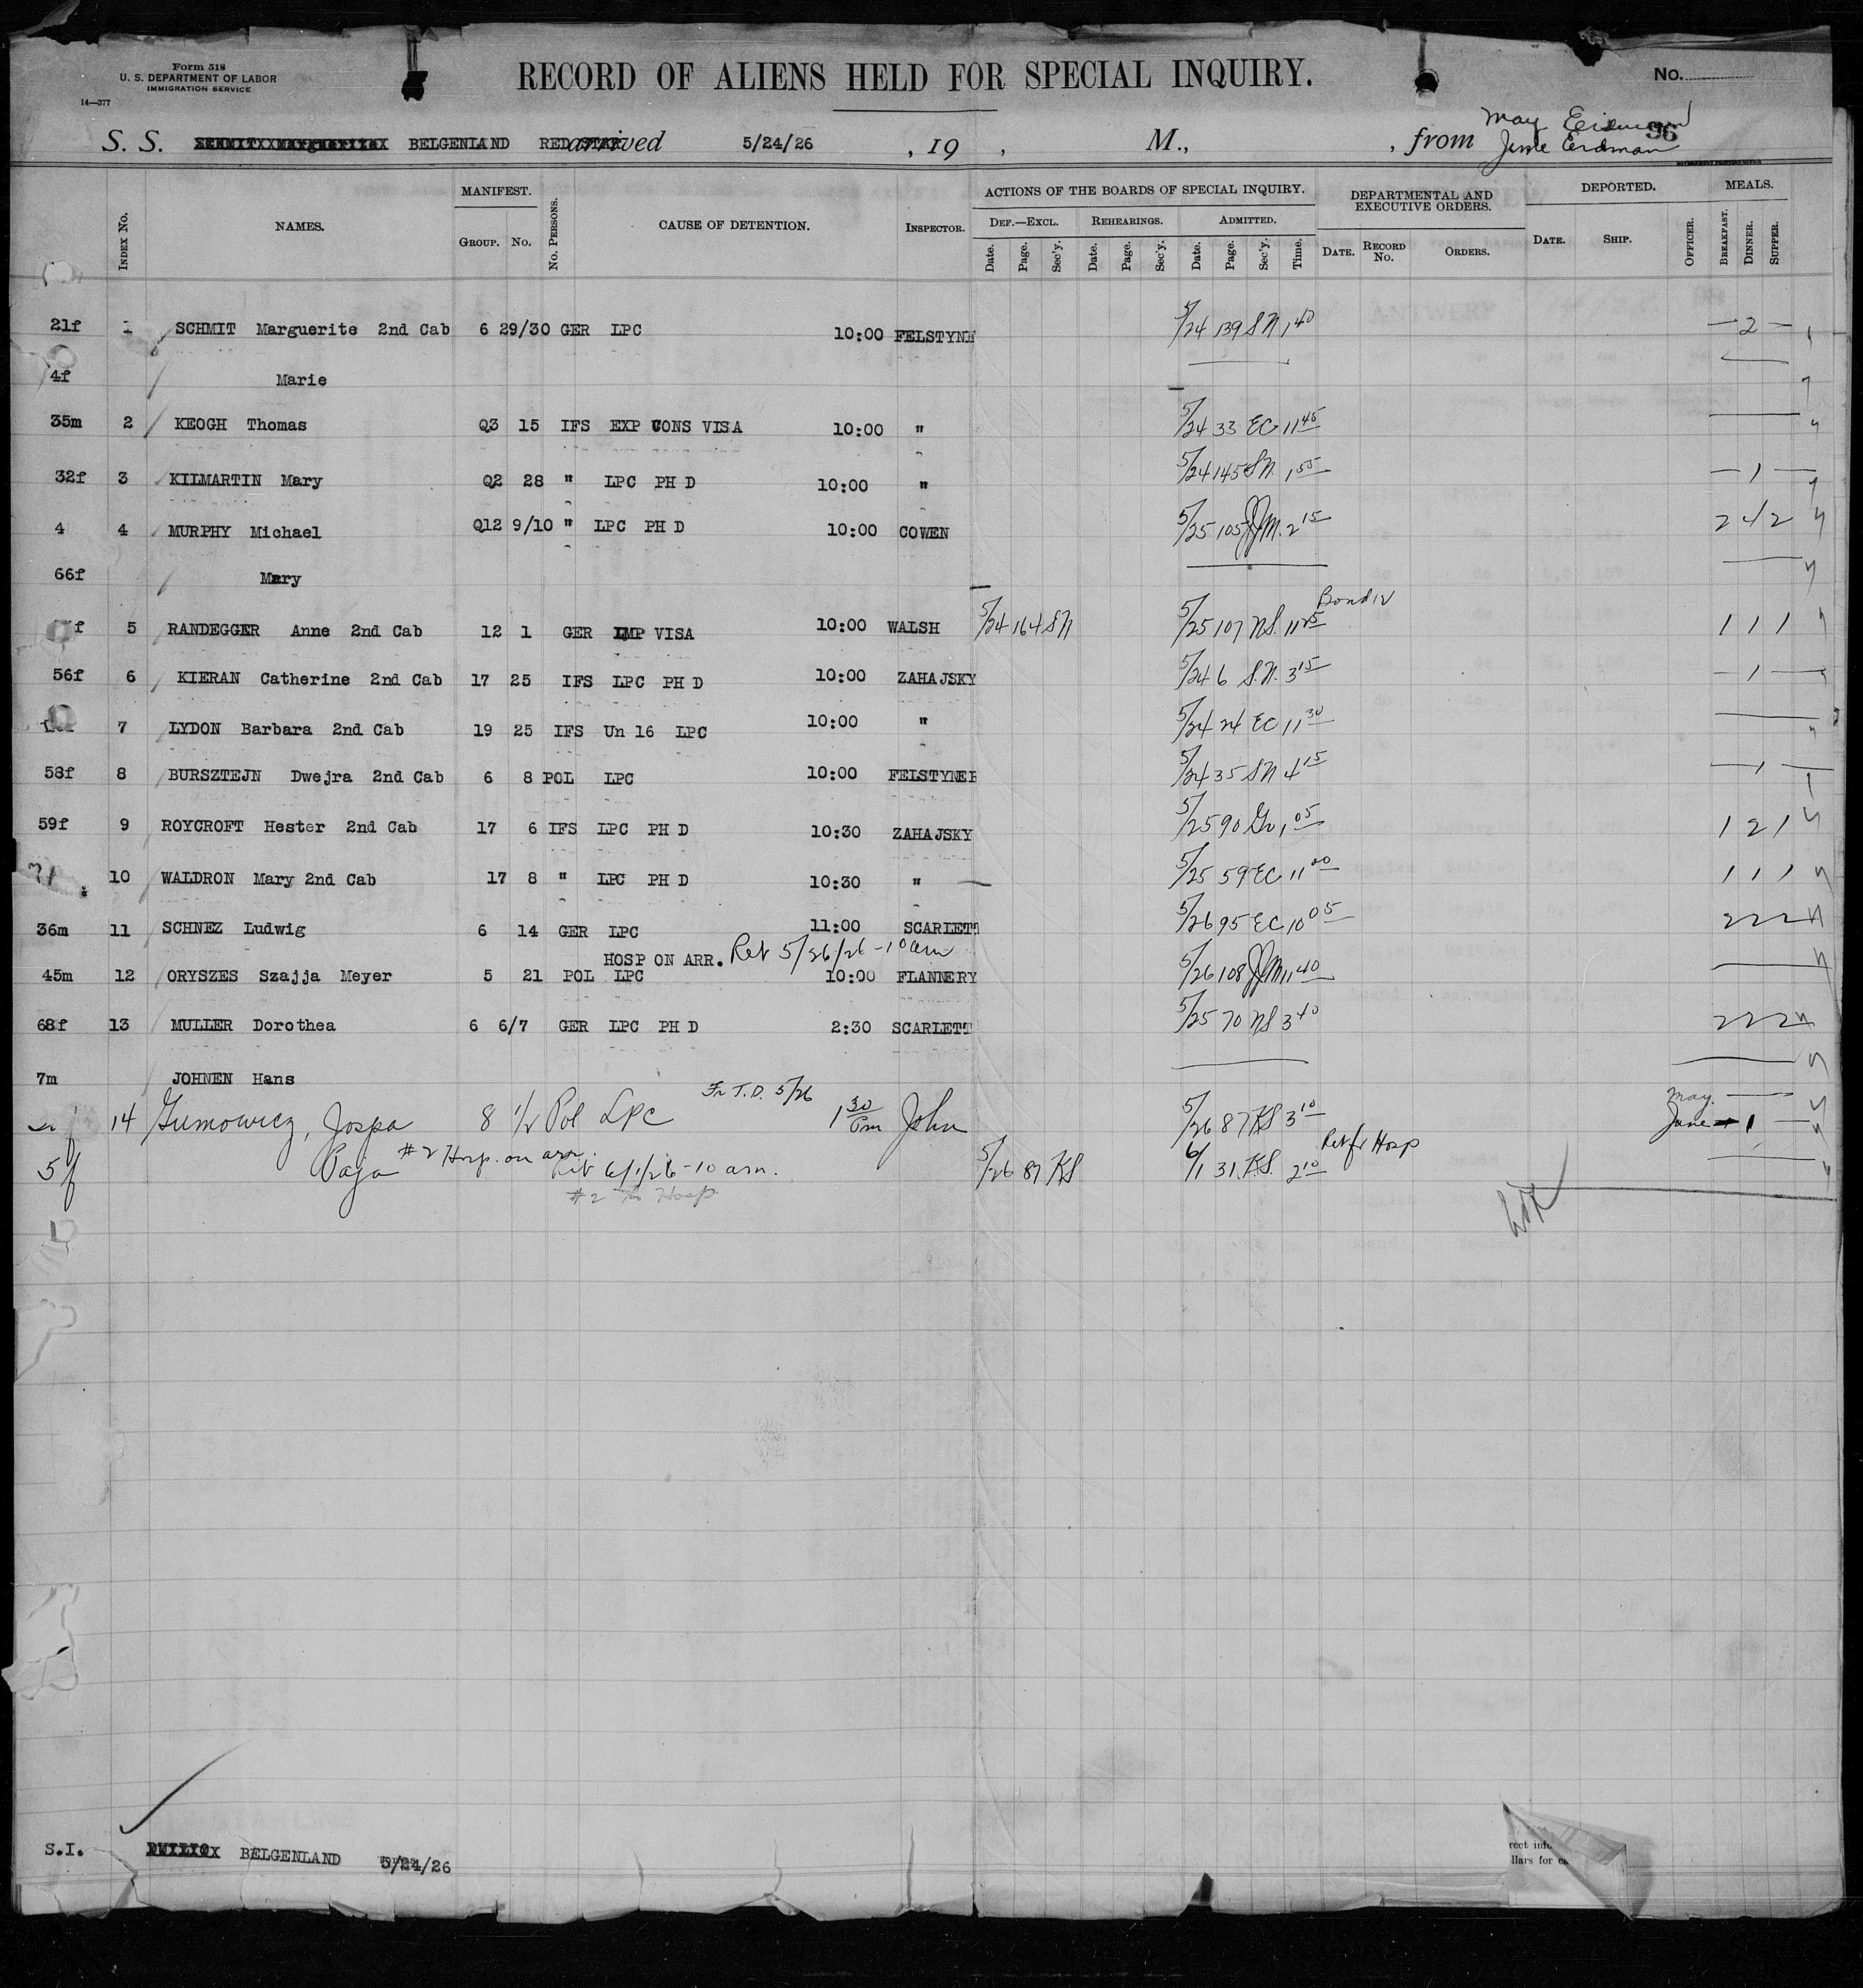 Form 518
U. S. DEPARTMENT OF LABOR
IMMIGRATION SERVICE
14—377
RECORD OF ALIENS HELD FOR SPECIAL INQUIRY.
No.
S. S. BELGENLAND RED STAR arrived 5/24/26 , 19 , M., , from May Eisman 96
June Erdman
Index No. NAMES. MANIFEST. Group. No. No. Persons. CAUSE OF DETENTION. Inspector. ACTIONS OF THE BOARDS OF SPECIAL INQUIRY. Def.—Excl. Date. Page. Sec'y. Rehearings. Date. Page. Sec'y. Admitted. Date. Page. Sec'y. Time. DEPARTMENTAL AND EXECUTIVE ORDERS. Date. Record No. Orders. DEPORTED. Date. Ship. Officer. MEALS. Breakfast. Dinner. Supper.
21f 1 SCHMIT Marguerite 2nd Cab 6 29/30 GER LPC 10:00 FELSTYNE 5/24 139 SN 1 40 — 2 —
4f Marie
35m 2 KEOGH Thomas Q3 15 IFS EXP CONS VISA 10:00 " 5/24 33 EC 11 45
32f 3 KILMARTIN Mary Q2 28 " LPC PH D 10:00 " 5/24 145 SN 1 55 — 1 —
4 4 MURPHY Michael Q12 9/10 " LPC PH D 10:00 COWEN 5/25 105 JJM. 2 15 2 4 2
66f Mary
Bond
f 5 RANDEGGER Anne 2nd Cab 12 1 GER IMP VISA 10:00 WALSH 5/24 164 SN 5/25 107 NS. 11 25 1 1 1
56f 6 KIERAN Catherine 2nd Cab 17 25 IFS LPC PH D 10:00 ZAHAJSKY 5/24 6 S.N. 3 15 — 1 —
7 LYDON Barbara 2nd Cab 19 25 IFS Un 16 LPC 10:00 " 5/24 24 EC 11 30
58f 8 BURSZTEJN Dwejra 2nd Cab 6 8 POL LPC 10:00 FELSTYNER 5/24 35 SN 4 15 — 1 —
59f 9 ROYCROFT Hester 2nd Cab 17 6 IFS LPC PH D 10:30 ZAHAJSKY 5/25 90 1 05 1 2 1
10 WALDRON Mary 2nd Cab 17 8 " LPC PH D 10:30 " 5/25 59 EC 11 00 1 1 1
36m 11 SCHNEZ Ludwig 6 14 GER LPC 11:00 SCARLETT 5/26 95 EC 10 05 2 2 2
HOSP ON ARR. Ret 5/26/26 - 10 am
45m 12 ORYSZES Szajja Meyer 5 21 POL LPC 10:00 FLANNERY 5/26 108 JJM 11 40
68f 13 MULLER Dorothea 6 6/7 GER LPC PH D 2:30 SCARLETT 5/25 70 NS 3 40 2 2 2
7m JOHNEN Hans
Fr T.D. 5/26 May. —
14 Gumowicz, Jospa 8 1/2 Pol LPC 1 30 Pm John 5/26 87 KS 3 10 June 1 —
5f Paja #2 Hosp. on arr. Ret 6/1/26 - 10 am. 5/26 87 KS 6/1 31. KS. 2 10 Ret fr Hosp
#2 To Hosp
S.I. BELGENLAND 5/24/26
rect inf
llars for e